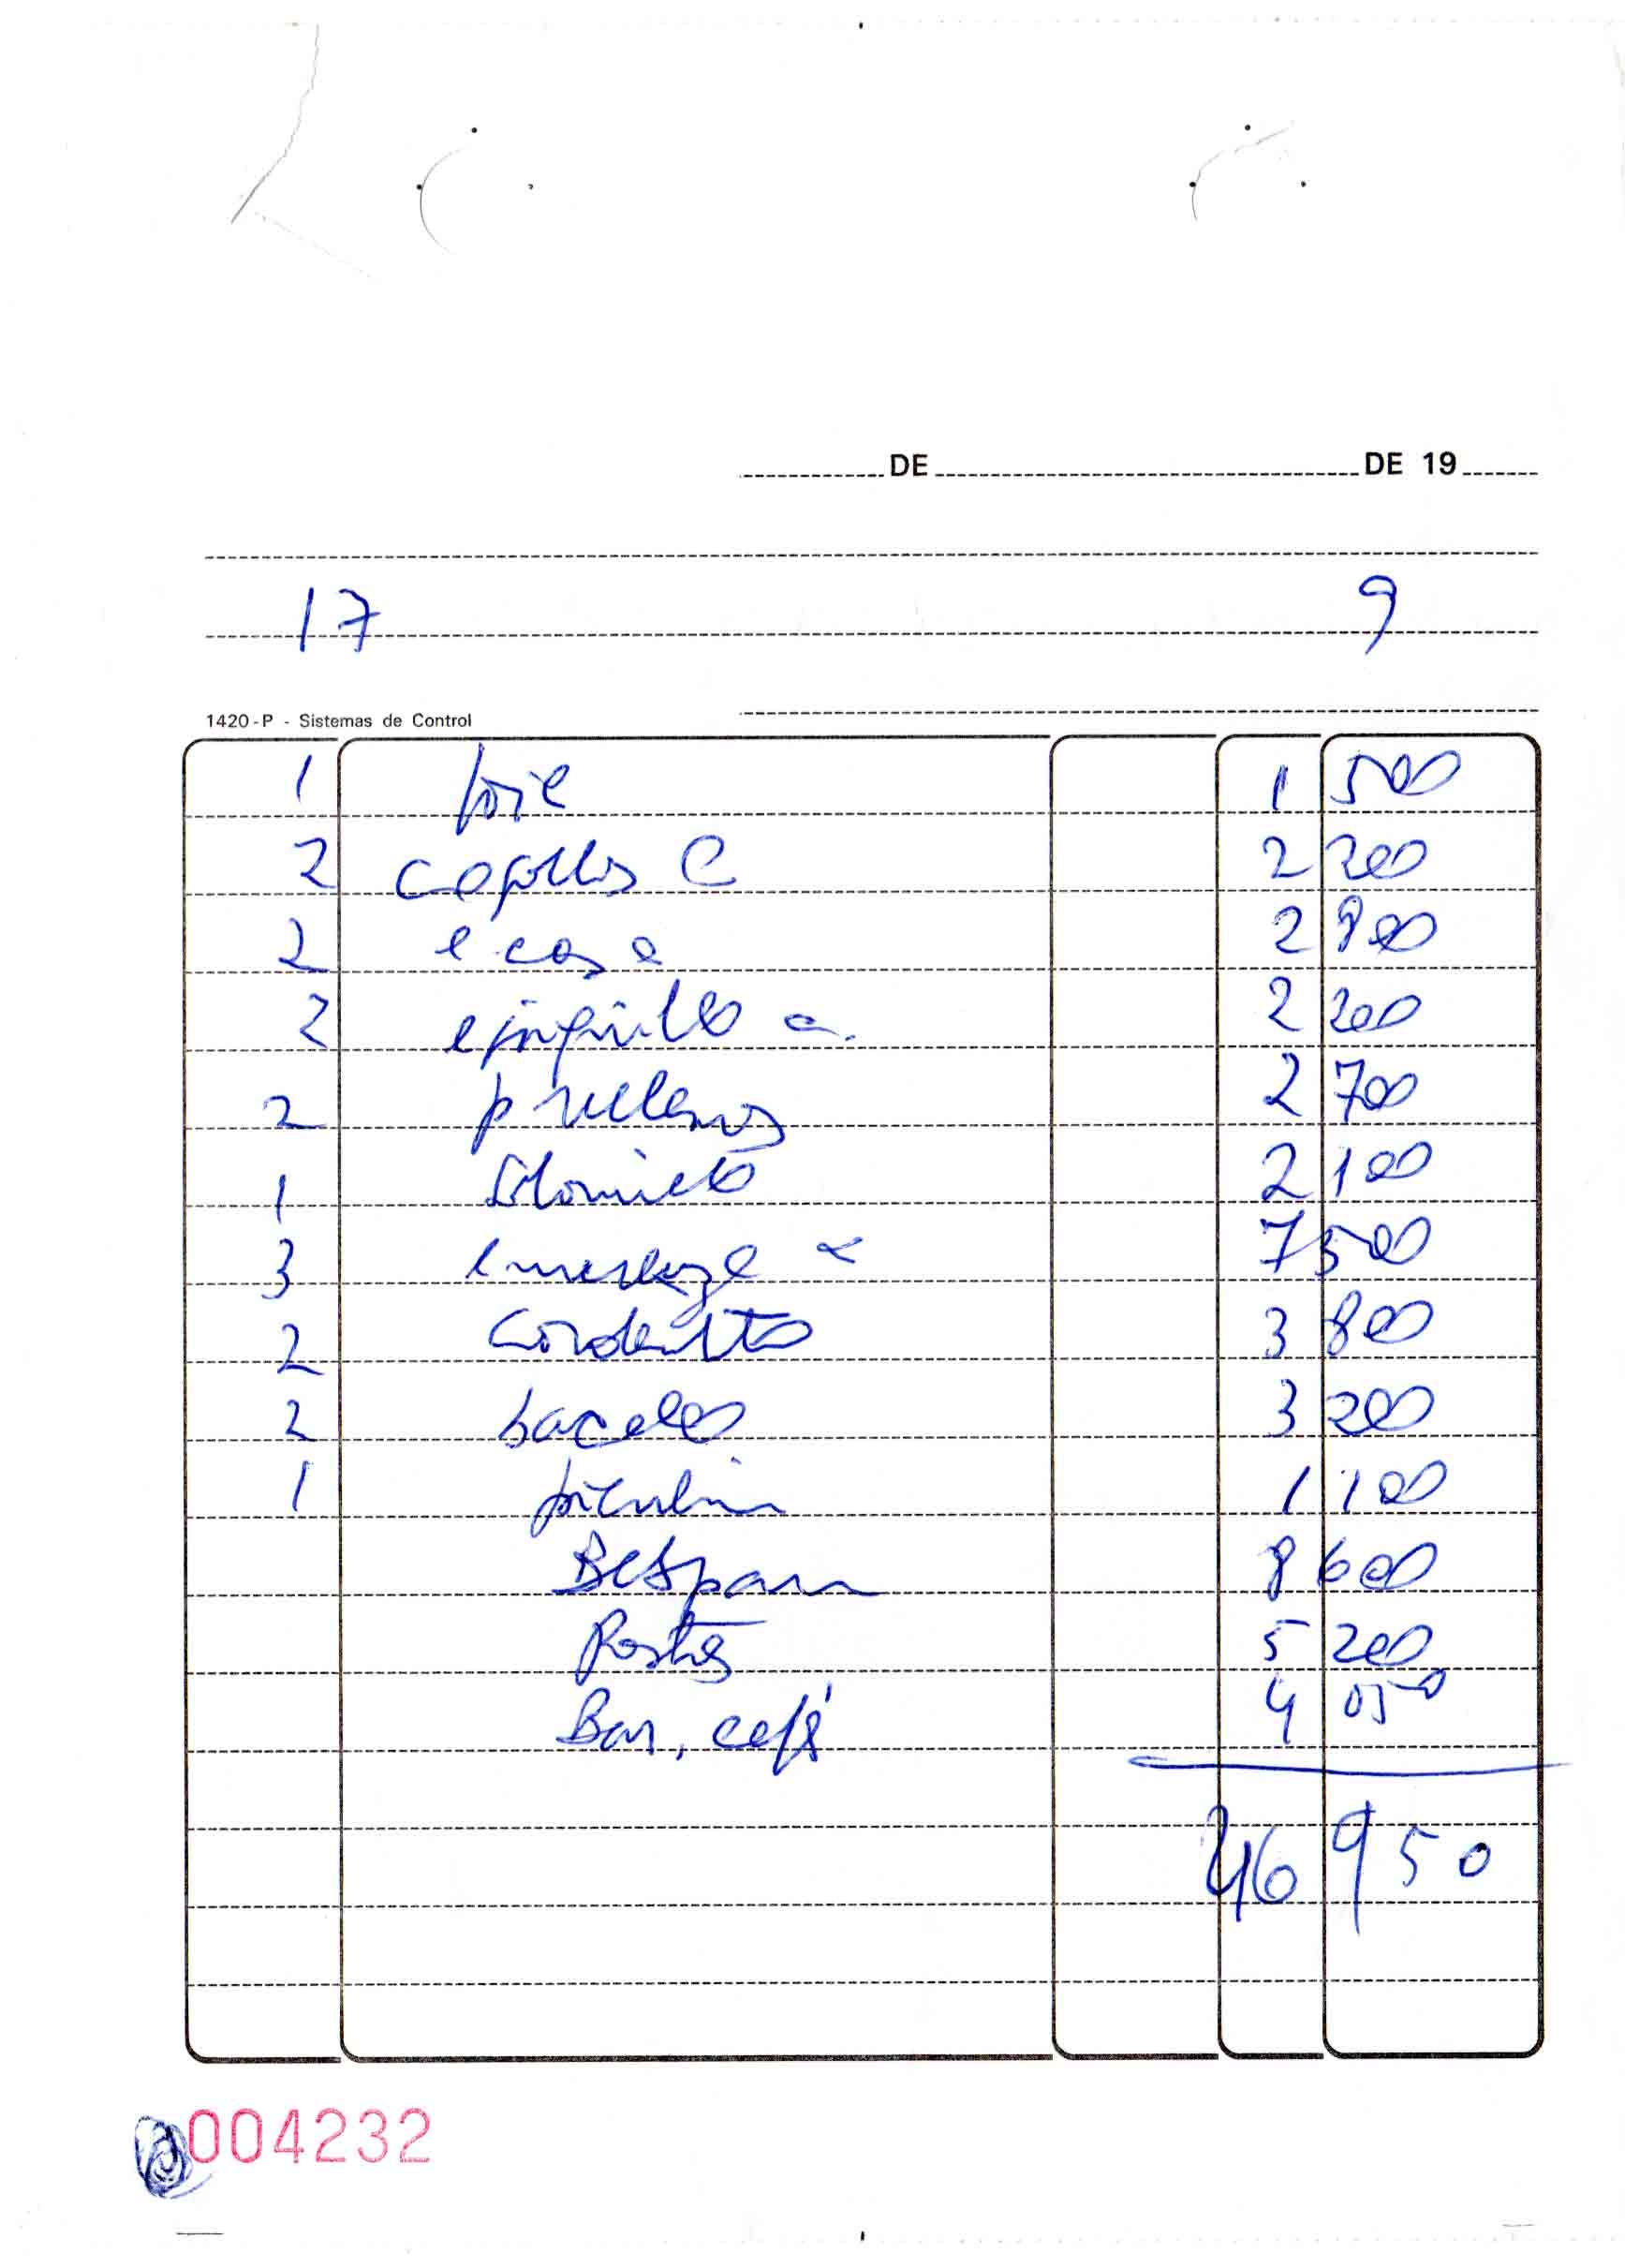 DE DE 19
17 9
1420-P - Sistemas de Control
1 foie 1 500
2 cogollos C 2 200
2 e casa 2 800
2 2 200
2 p rellenos 2 700
1 solomillo 2 100
3 7 500
2 Corderito 3 800
2 bacalao 3 200
1 1 100
Beb pan 8 600
Postres 5 200
Bar, café 4 050
46 950
004232